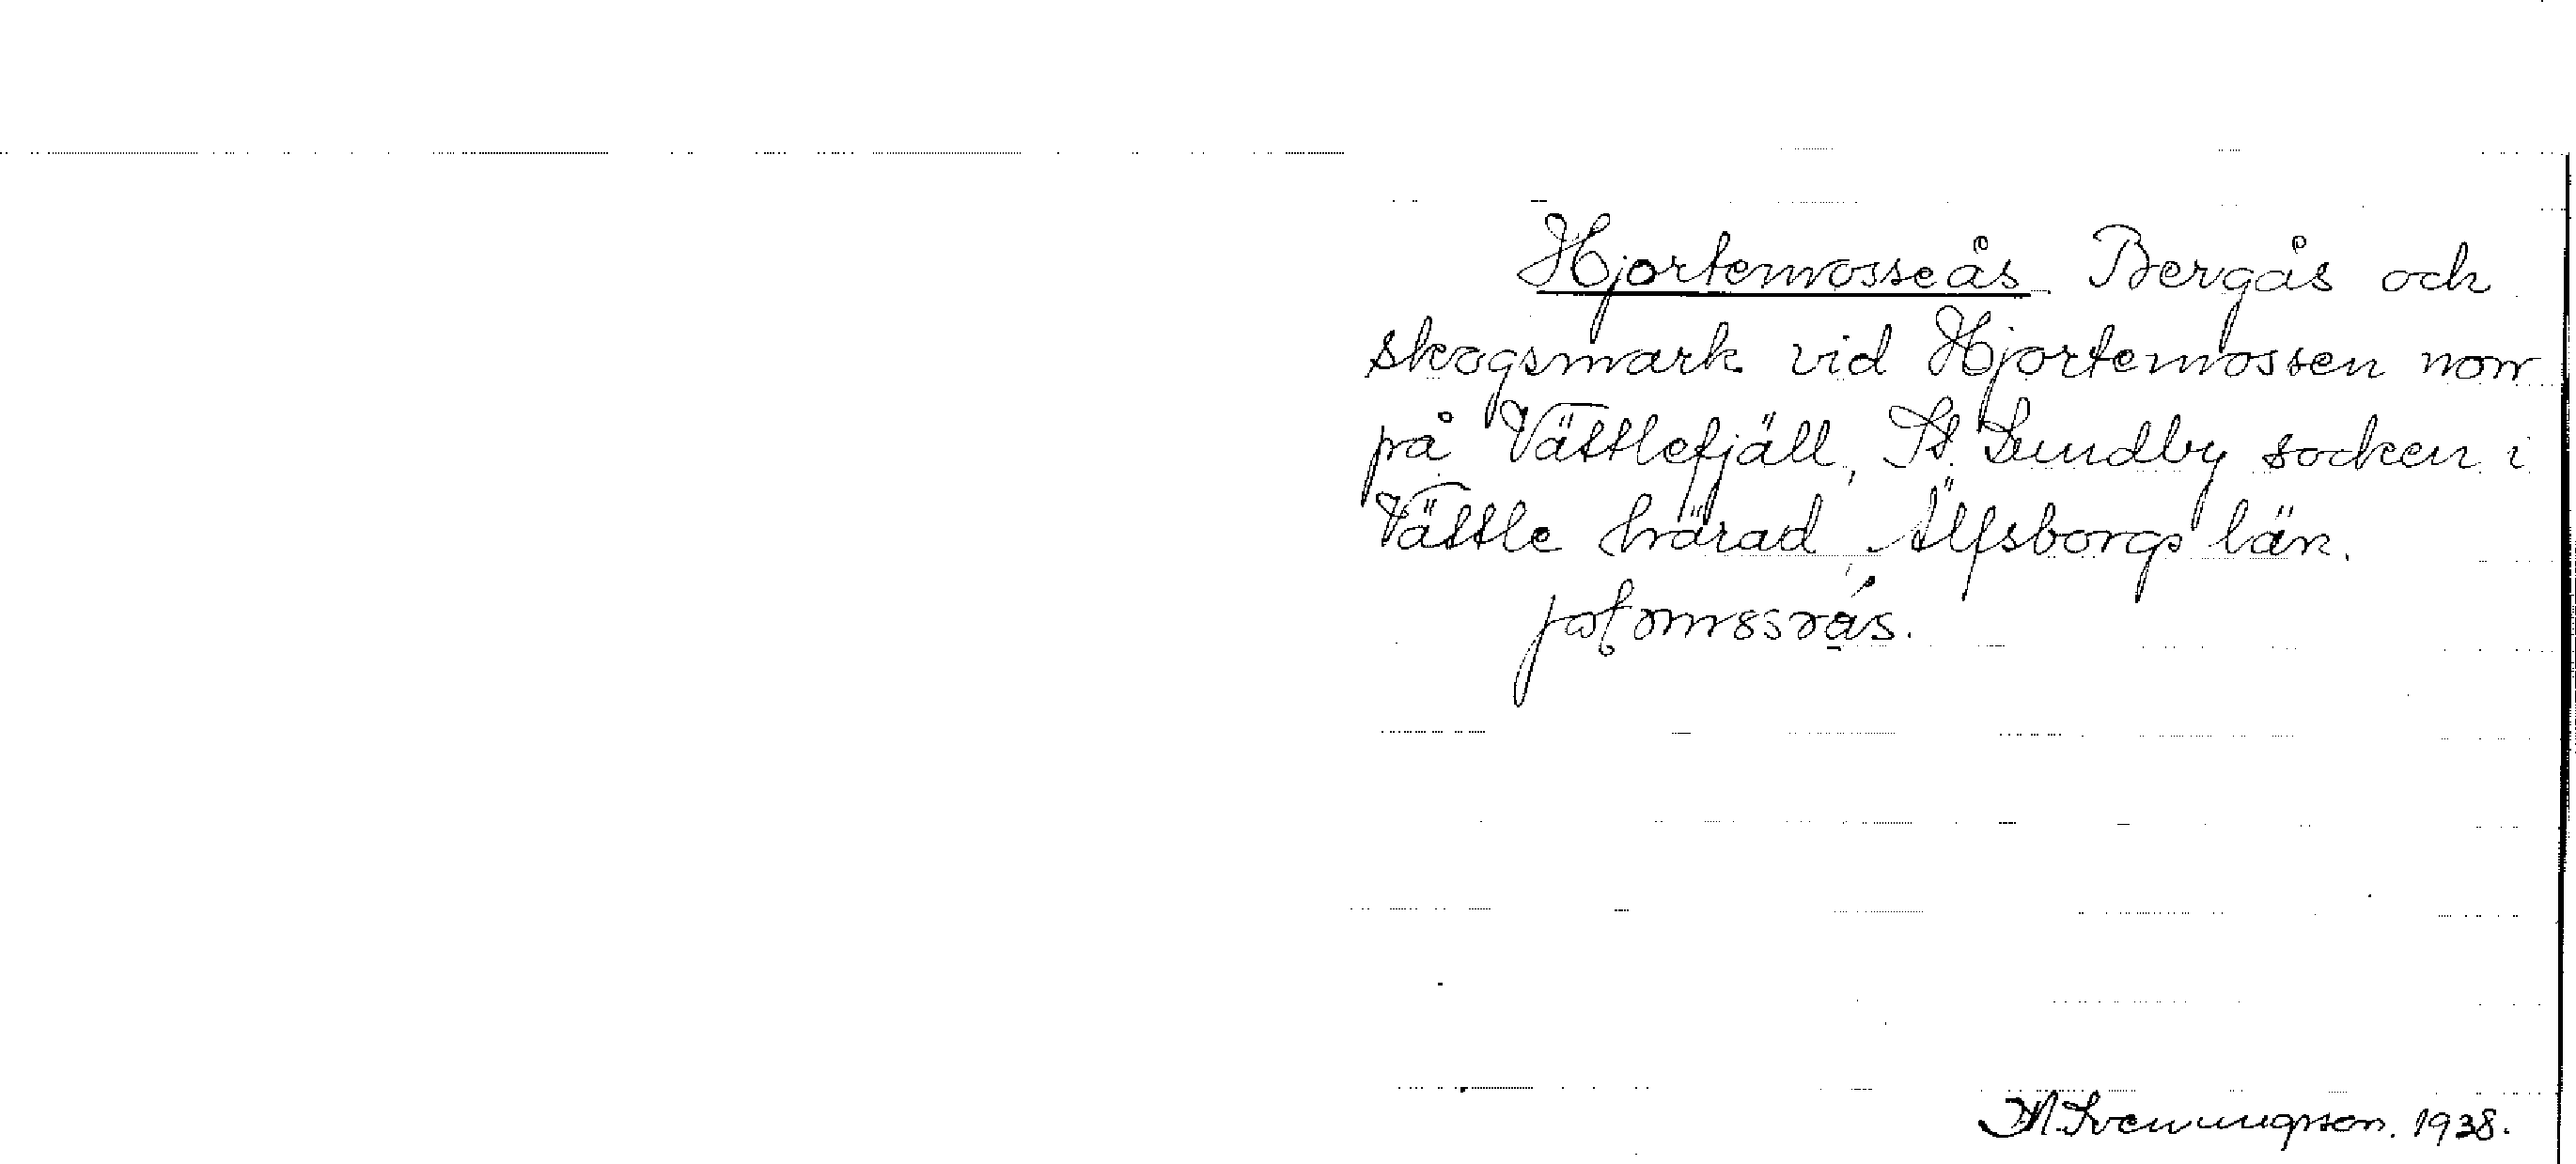 Hjortemosseås Bergås och
skogsmark vid Hjortemossen norr
på Vättlefjäll, St. Lundby socken i
Vättle härad, Älfsborgs län.
H. Svenungsson. 1938.